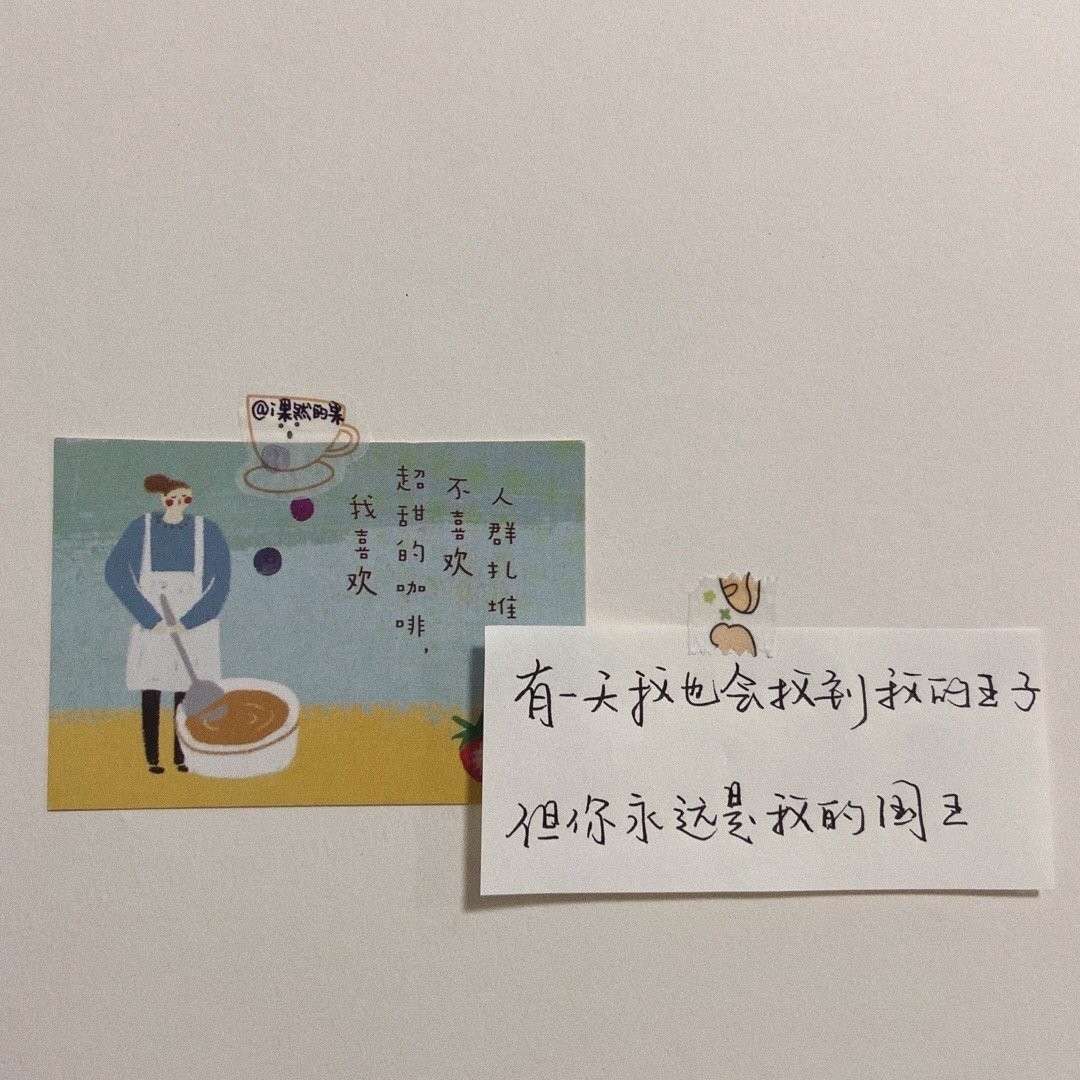 @i果然的果
我喜欢
超甜的咖啡，
不喜欢
人群扎堆
有一天我也会找到我的王子
但你永远是我的国王